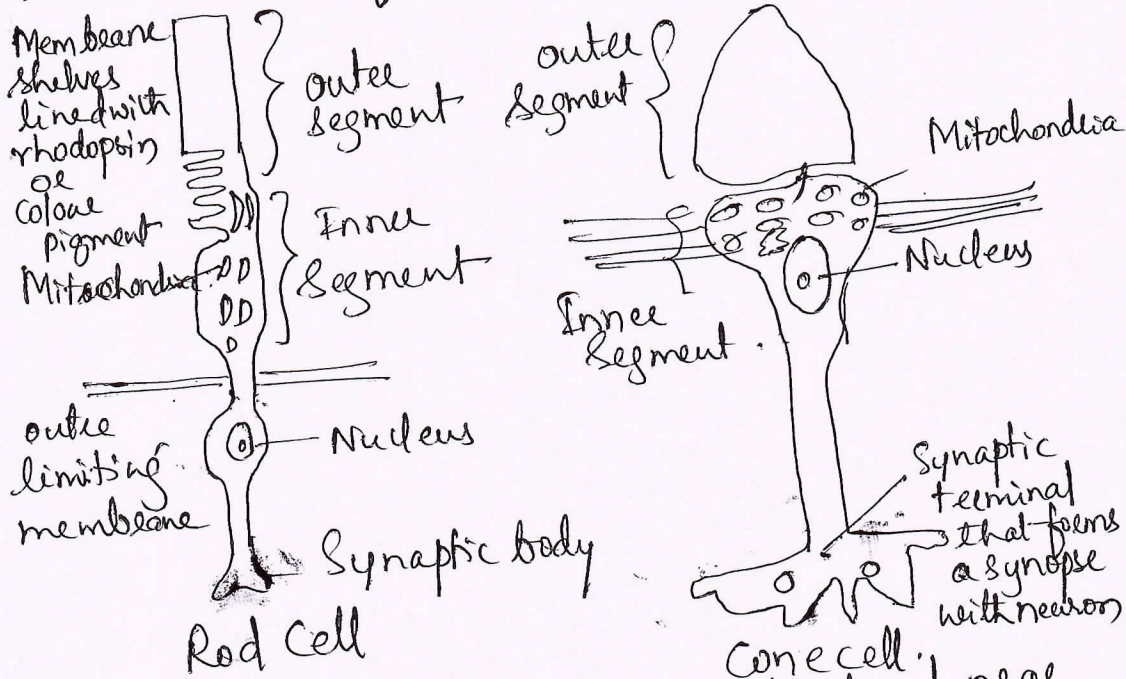 Membrane
shelves
lined with
rhodopsin
or
Colour
pigment
Mitochondria
outer
segment
Inner
Segment
outer
limiting
membrane
Nucleus
Synaptic body
Rod Cell
outer
segment
Mitochondria
Nucleus
Inner
Segment.
Synaptic
terminal
that forms
a synopse
with neuron
Cone cell.